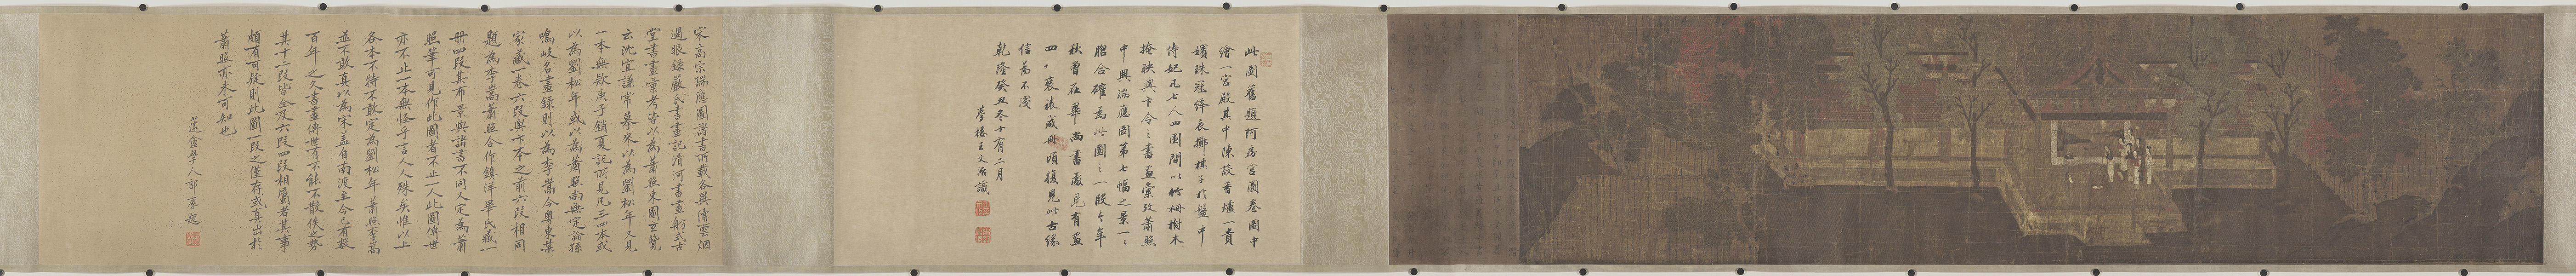 此圖舊題阿房宮圖卷圖中
繪一宮殿其中陳設香爐一貴
嬪珠冠絳衣擲棋子於盤中
侍妃凡七人四圍間以竹柵樹木
掩映與卞令之書畫彙攷蕭照
中興瑞應圖第七幅之景一一
脗合確為此圖之一段今年
秋曾在畢尚書處見有畫
四十裝裱咸冊頃復見此古緣
信為不淺
乾隆癸丑冬十有二月
夢樓王文治識
宋高宗瑞應圖諸書所載各異倩雲烟
過眼錄嚴氏書畫記清河書畫舫式古
堂書畫彙考皆以為蕭照東圖玄覽
云沈宜謙常摹來以為劉松年又見
一本無欵庚子銷夏記所見凡三四本或
以為劉松年或以為蕭照尚無定論孫
鳴岐名畫錄則以為李嵩今粵東葉
家藏一卷六段與卞本之前六段相同
題為李嵩蕭照合作鎮洋畢氏藏一
冊四段其布景與諸書不同又定為蕭
照筆可見作此圖者不止一人此圖傳世
亦不止一本無怪乎言人人殊矣惟以上
各本不特不敢定為劉松年蕭照李嵩
並不敢真以為宋蓋自南渡至今已有數
百年之久書畫傳世有不能不散佚之勢
其十二段皆全及六段四段相屬者其事
頗有可疑則此圖一段之僅存或真出於
蕭照亦未可知也
蘧盦學人郭𢊍題